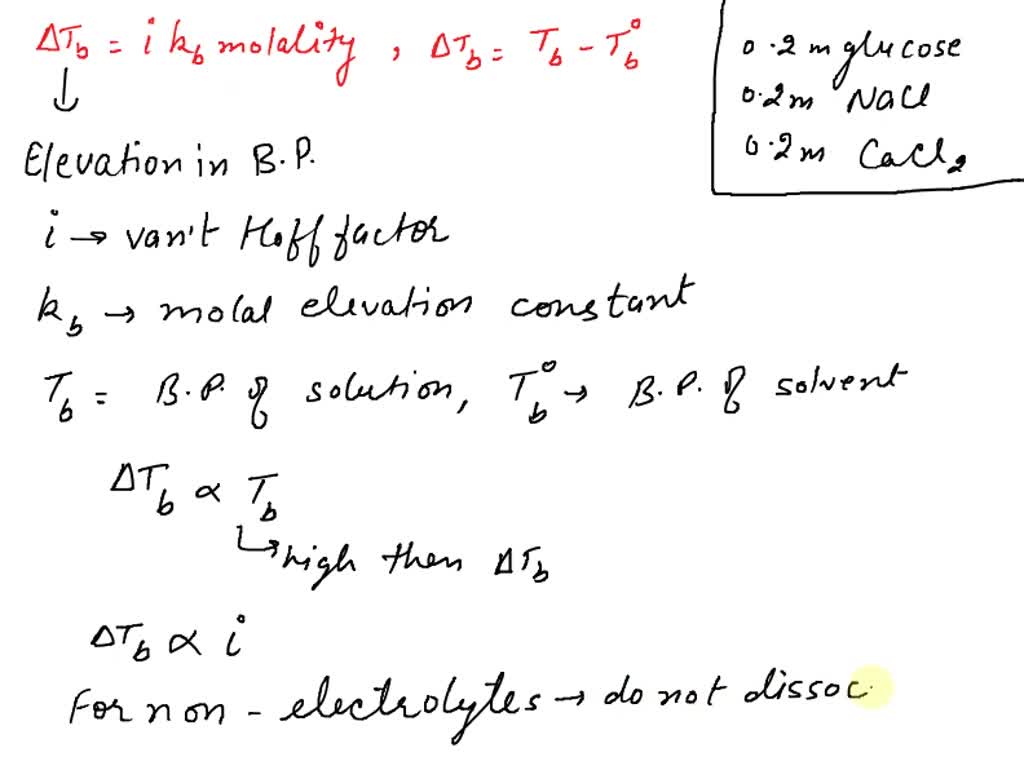 ΔTb = i kb molality , ΔTb = Tb - Tb°
0.2m glucose
0.2m NaCl
0.2m CaCl2
Elevation in B.P.
i → van't Hoff factor
kb → molal elevation constant
Tb = B.P. of solution, Tb° → B.P. of solvent
ΔTb ∝ Tb
↳ high then ΔTb
ΔTb ∝ i
For non - electrolytes → do not dissoc